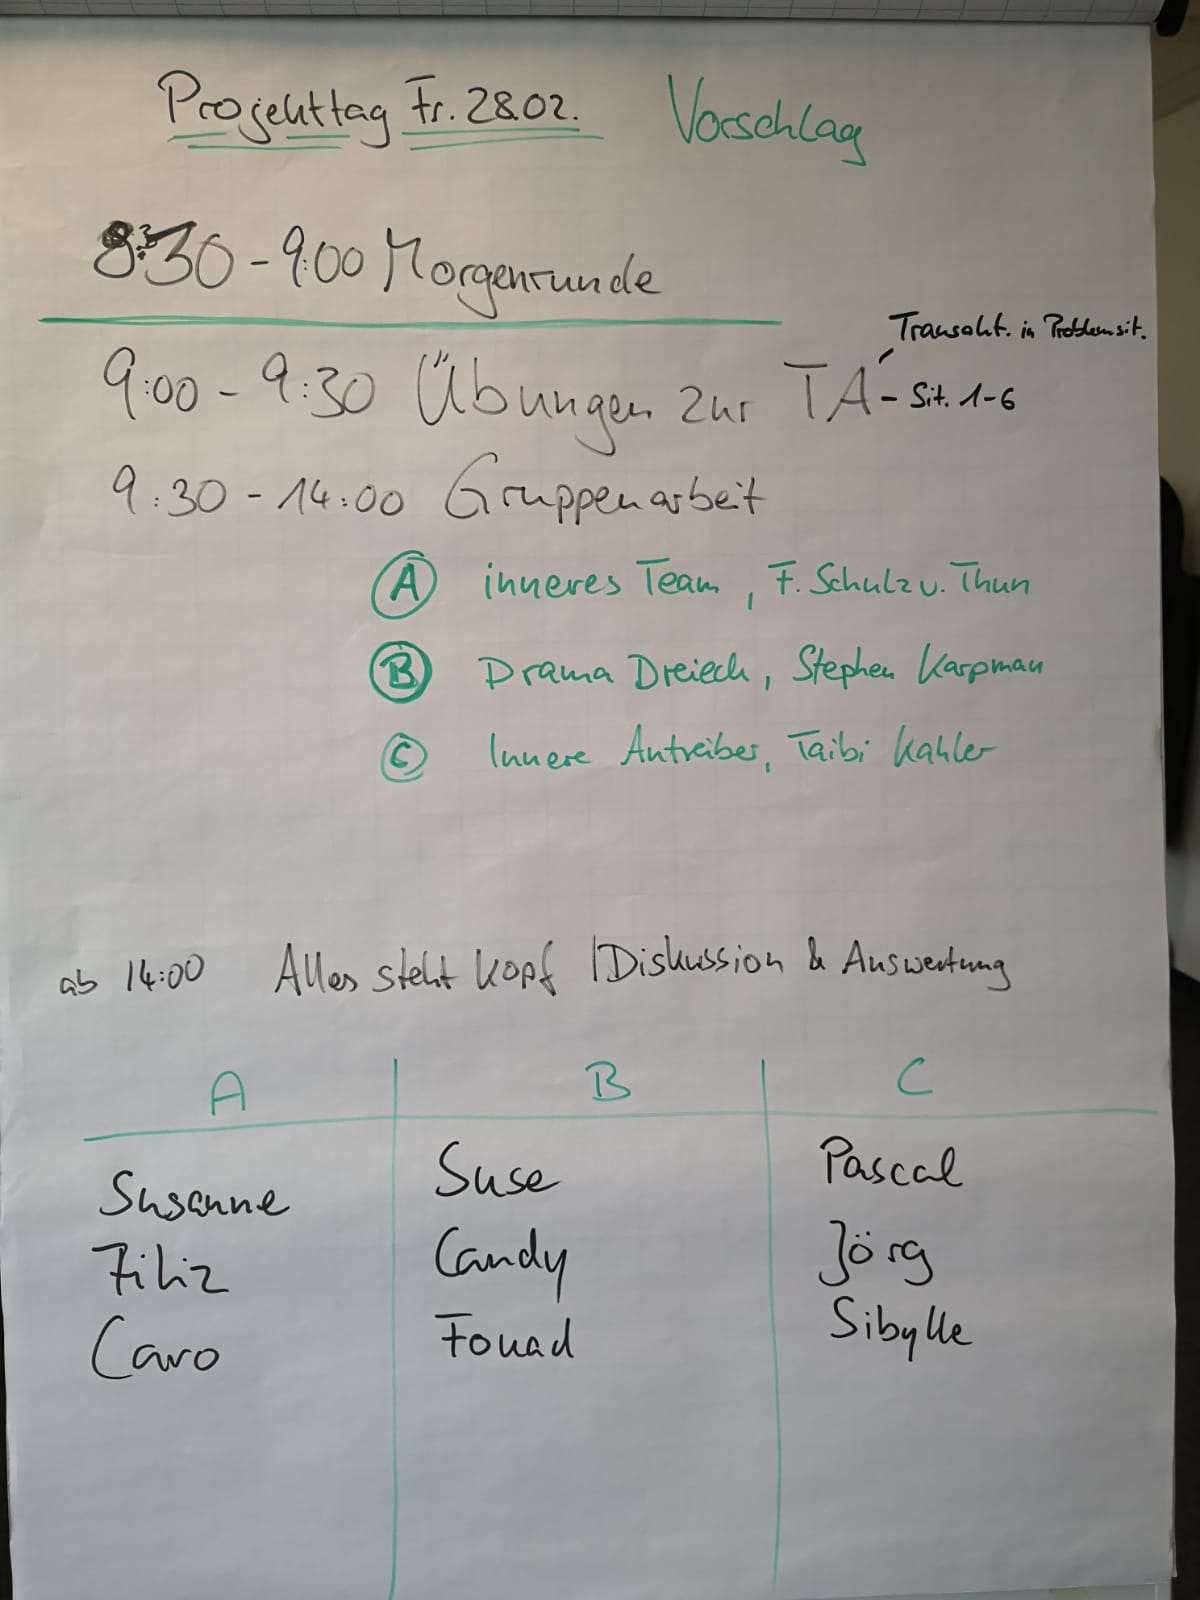 Projekttag Fr. 28.02. Vorschlag
8:30 - 9:00 Morgenrunde
Transakt. in Problemsit.
9:00 - 9:30 Übungen zur TA - Sit. 1-6
9:30 - 14:00 Gruppenarbeit
A inneres Team, F. Schulz v. Thun
B Drama Dreieck, Stephen Karpman
C Innere Antreiber, Taibi Kahler
ab 14:00 Alles steht Kopf | Diskussion & Auswertung
A B C
Susanne Suse Pascal
Filiz Candy Jörg
Caro Fouad Sibylle